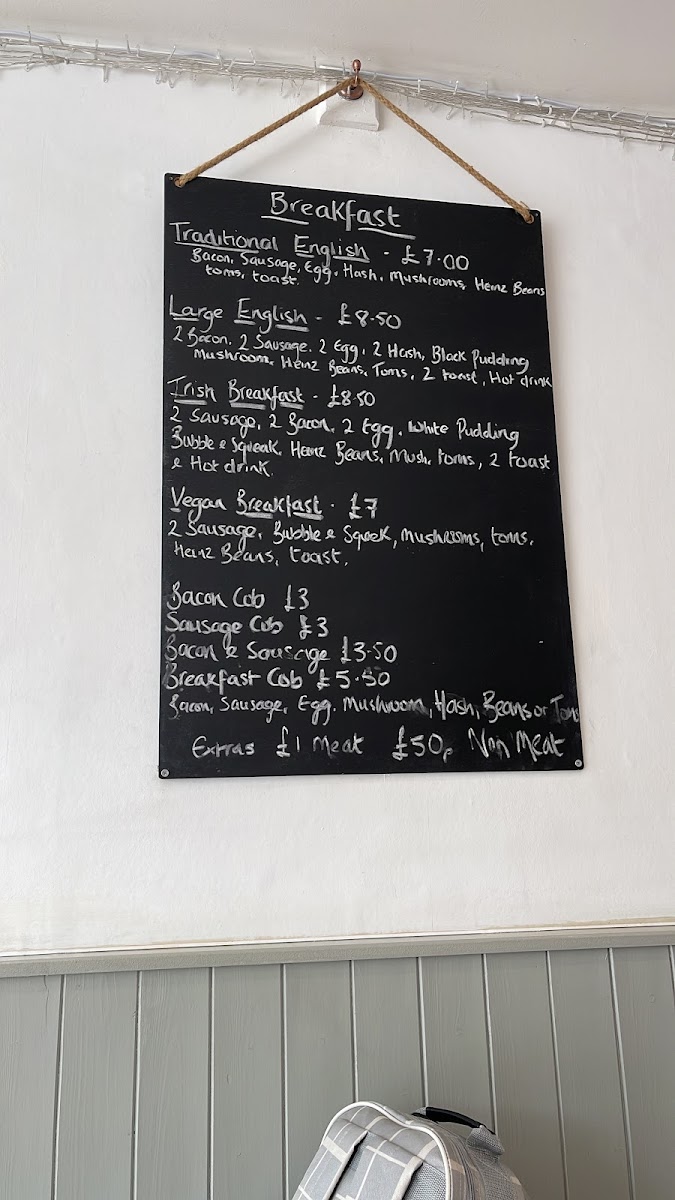 Breakfast
Traditional English - £7.00
Bacon, Sausage, Egg, Hash, Mushrooms, Heinz Beans
toms, toast.
Large English - £8.50
2 Bacon, 2 Sausage, 2 Egg, 2 Hash, Black Pudding
Mushroom, Heinz Beans, Toms, 2 toast, Hot drink
Irish Breakfast - £8.50
2 Sausage, 2 Bacon, 2 Egg, White Pudding
Bubble & Squeak, Heinz Beans, Mush, toms, 2 toast
& Hot drink.
Vegan Breakfast - £7
2 Sausage, Bubble & Squeek, mushrooms, toms,
Heinz Beans, toast.
Bacon Cob £3
Sausage Cob £3
Bacon & Sausage £3.50
Breakfast Cob £5.50
Bacon, Sausage, Egg, Mushroom, Hash, Beans or Toms
Extras £1 Meat £50p Non Meat